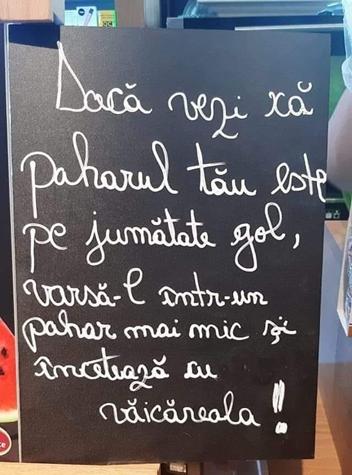 Dacă vezi că
paharul tău este
pe jumătate gol,
varsă-l într-un
pahar mai mic și
încetează cu
văicăreala!